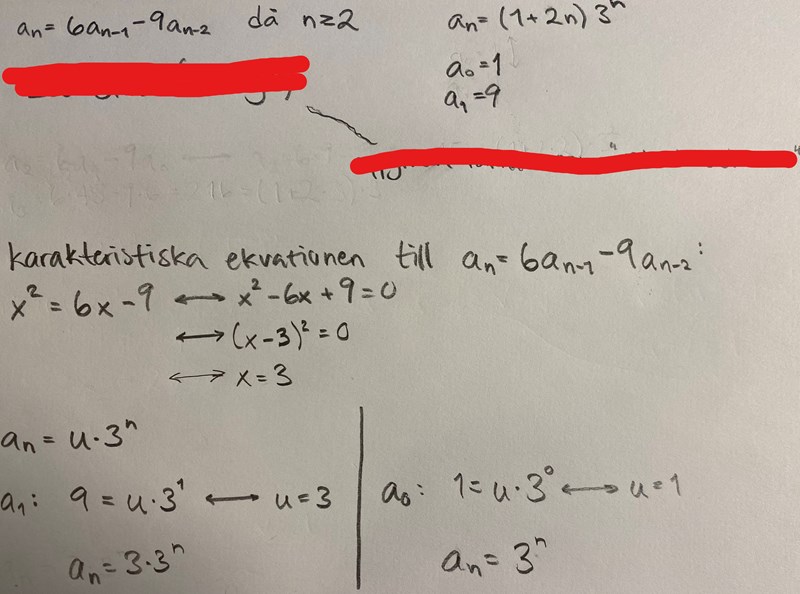 aₙ = 6aₙ₋₁ - 9aₙ₋₂ då n≥2
aₙ = (1 + 2n) 3ⁿ
a₀ = 1
a₁ = 9
karakteristiska ekvationen till aₙ = 6aₙ₋₁ - 9aₙ₋₂:
x² = 6x - 9 ⟷ x² - 6x + 9 = 0
⟷ (x - 3)² = 0
⟷ x = 3
aₙ = u · 3ⁿ
a₁: 9 = u · 3¹ ⟷ u = 3
aₙ = 3 · 3ⁿ
a₀: 1 = u · 3⁰ ⟷ u = 1
aₙ = 3ⁿ